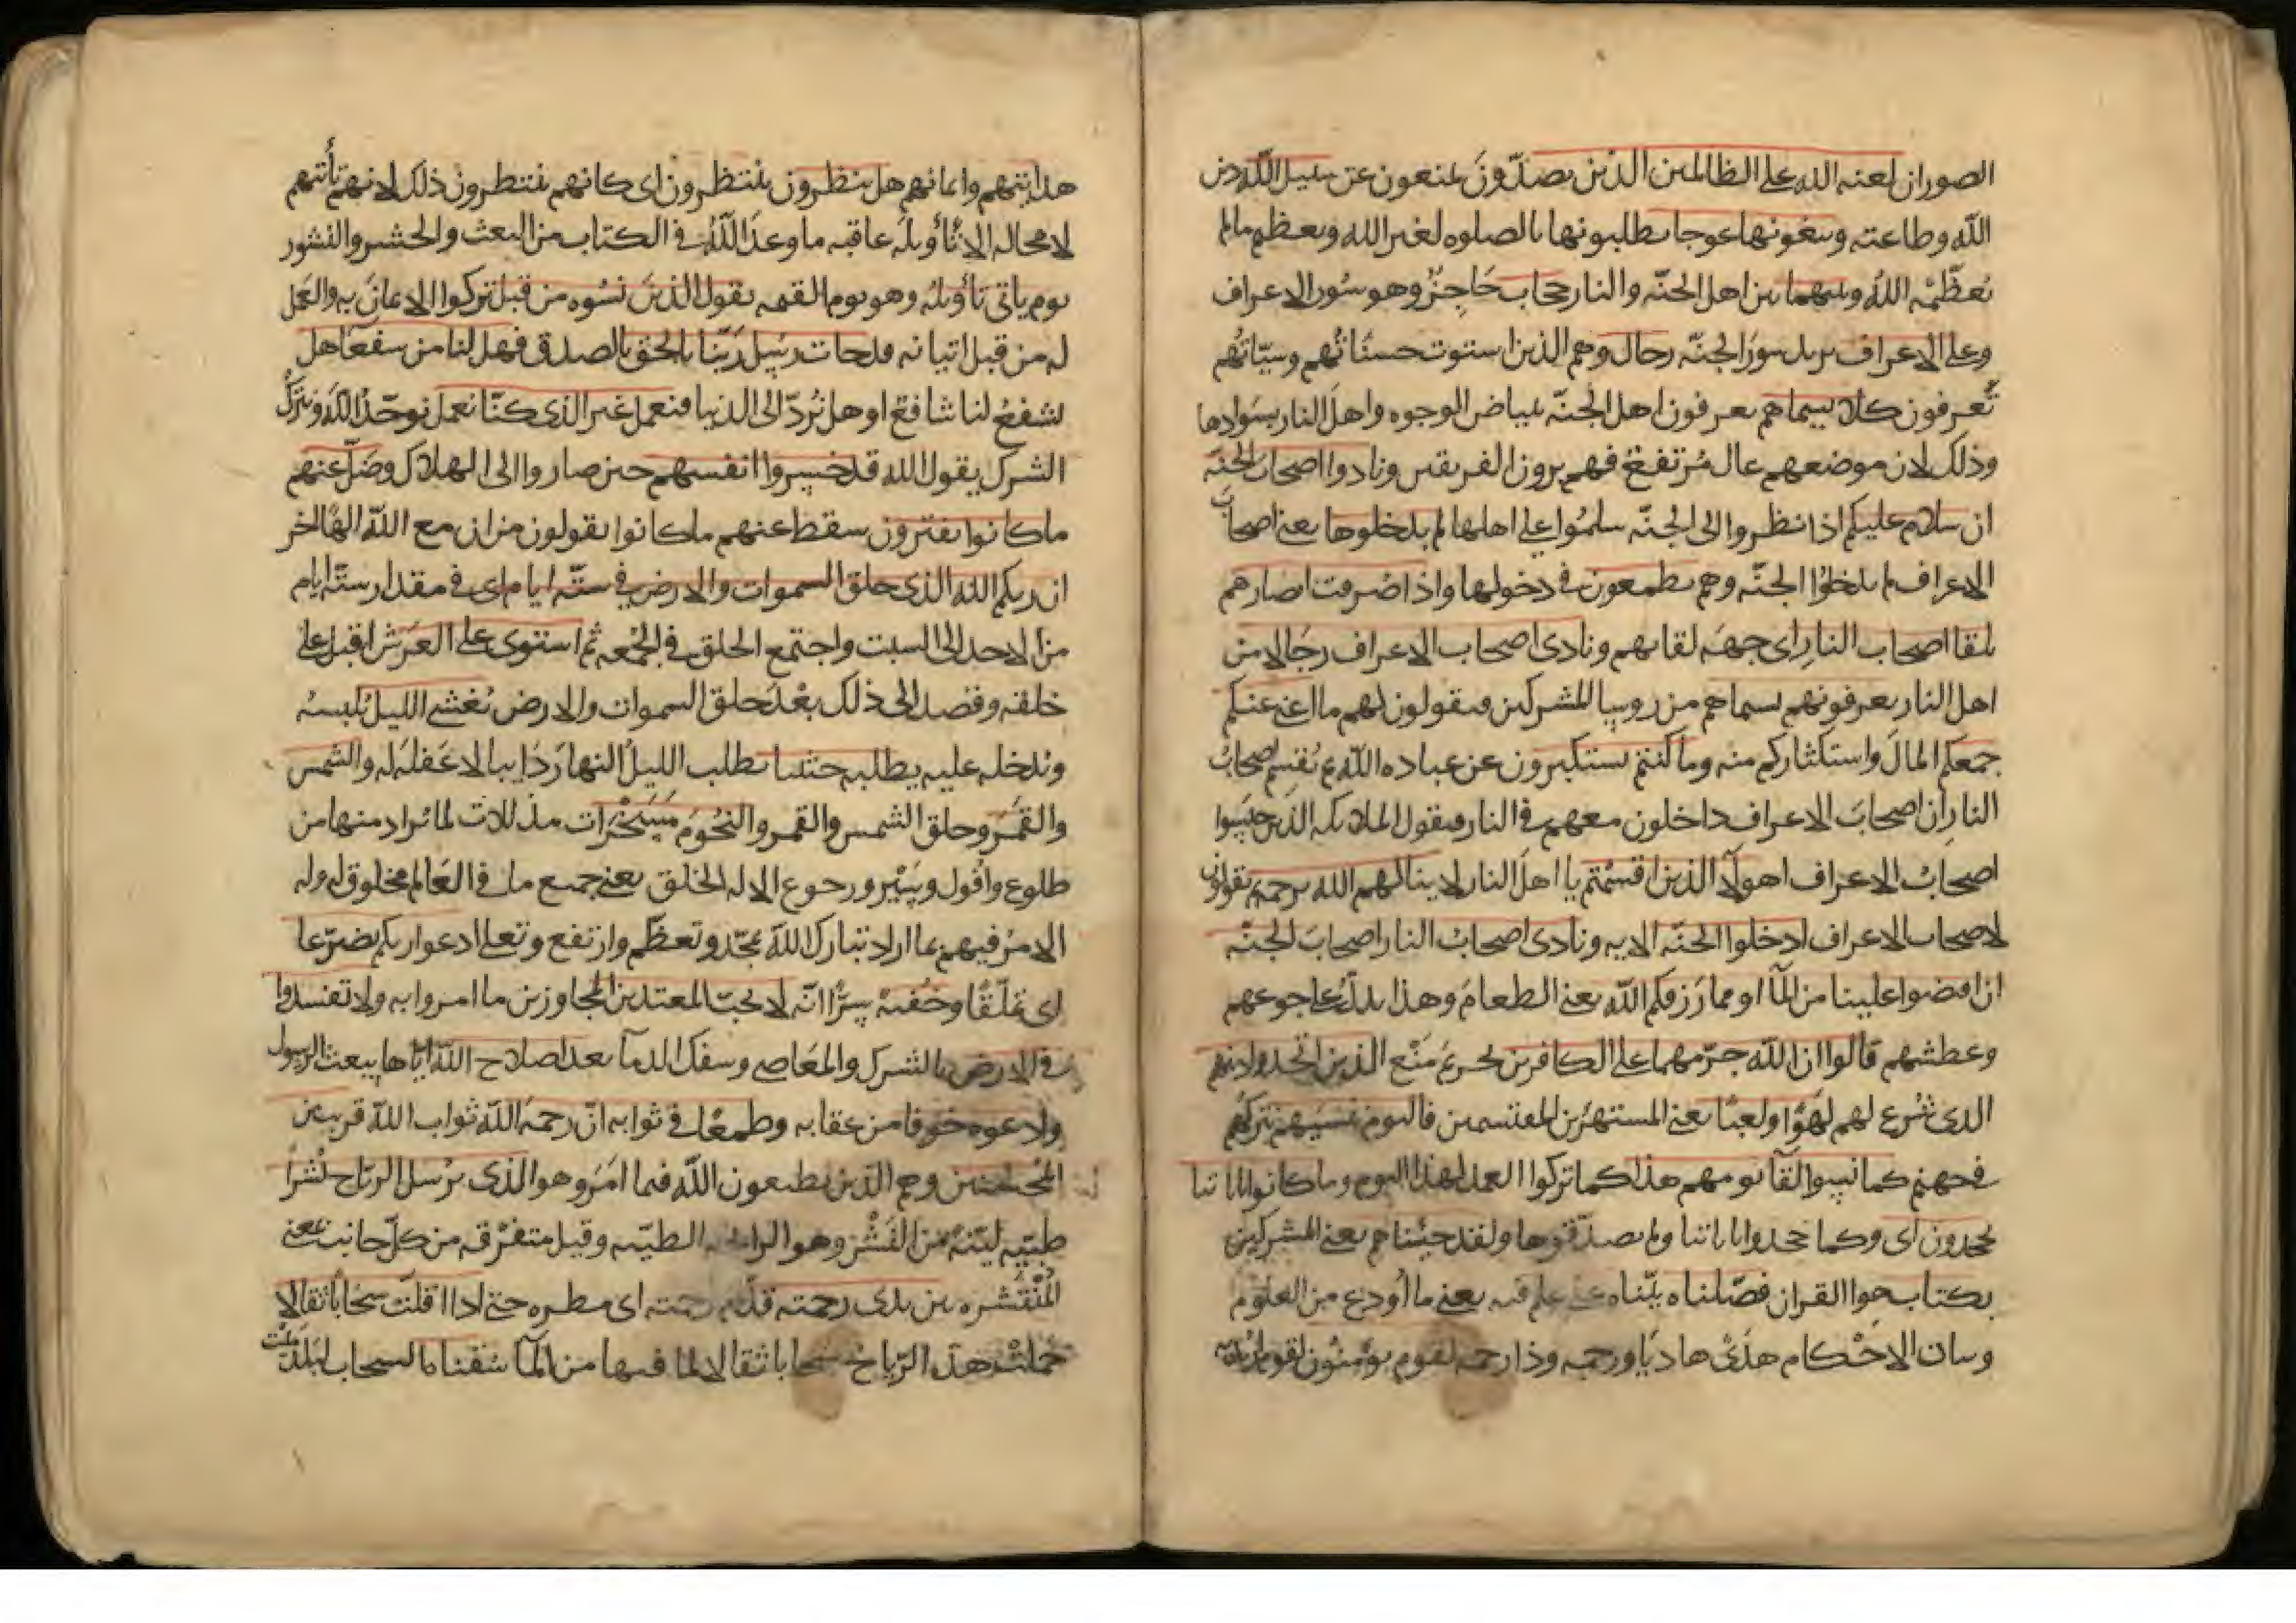 الصور ان لعنه الله على الظالمين الذين يصدّون يمنعون عن سبيل الله دين
الله وطاعته ويبغونها عوجا يطلبونها بالصلوه لغير الله وتعظيم ما لم
يُعظّمْه اللهُ وبينهما بين اهل الجنّه والنار حجاب حَاجِزٌ وهو سُور الاعراف
وعلى الاعراف يريد سورَ الجنّه رجال وهم الذين استوت حسنَاتُهم وسيّاتُهم
يَعرفون كلا بسيماهم يعرفون اهل الجنّه ببياض الوجوه واهلَ النار بسَوادها
وذلك لان موضعهم عال مُرتفع فهم يرون الفريقين ونادوا اصحاب الجنّه
ان سلام عليكم اذا نظروا الى الجنّه سلمُوا على اهلها لم يدخلوها يعنى اصحابَ
الاعراف لم يدخلُوا الجنّه وهم يطمعون فى دخولها واذا صُرفت ابصارهم
تلقا اصحاب النارِ اى جهَه لقايهم ونادى اصحاب الاعراف رجَالا من
اهل النار يعرفونهم بسيماهم من روسا المشركين فيقولون لهم ما اغنى عنكم
جمعكم المالَ واستكثاركم منه وما كنتم تستكبرون عن عباده الله ثم يُقسِم اصحابُ
النارِ ان اصحابَ الاعراف داخلون معهم فى النار فيقول الملايكه الذين حبسوا
اصحابُ الاعراف اهولآ الذين اقسمتم يا اهلَ النار لا ينالهم الله برحمه ثم يقولون
لاصحاب الاعراف ادخلوا الجنّه الايه ونادى اصحابُ النار اصحابَ الجنّه
ان افيضوا علينا من المآ او مما رَزقكم الله يعنى الطعامَ وهذا يدلّ على جوعهم
وعطشهم قالوا ان الله حرّمهما على الكافرين تحريمَ مَنْعٍ الذين اتخذوا دينهم
الذى شُرع لهم لهَوًا ولعبًا يعنى المستهزين المقتسمين فاليوم ننسَيهم نتركهُم
فى جهنم كما نسوا لقآ يومهم هذا كما تركوا العمل لهذا اليوم وما كانوا باياتنا
يجحدون اى وكما جحدوا باياتنا ولم يصدّقوها ولقد جيناهم يعنى المشركين
بكتاب هوا القران فصّلناه بيّناه على علم فيه يعنى ما اُودع من العلوم
وبيان الاحْكام هدًى هاديًا ورحمه وذا رحمه لقوم يؤمنون لقوم
هدايتهم وايمانهم هل ينظرون ينتظرون اى كانهم ينتظرون ذلك لانهم تأتيهم
لا محاله الا تأويلَه عاقبه ما وعدَ اللهُ فى الكتاب من البعث والحشر والنشور
يوم ياتى تاويلُه وهو يوم القيمه يقول الذينَ نسُوه من قبل تركوا الايمانَ به والعَمل
له من قبل اتيانه قد جات رسُل ربّنا بالحق بالصدق فهل لنا من شفعآ هل
يشفعُ لنا شافع او هل نُردّ الى الدنيا فنعمل غير الذى كنّا نعمل نوحّدُ اللهَ ونتركُ
الشرك يقول الله قد خسروا انفسهم حين صاروا الى الهلاك وضلّ عنهم
ما كانوا يفترون سقط عنهم ما كانوا يقولون من ان مع الله الهًا اخر
ان ربكم الله الذى خلق السموات والارض فى ستّه ايام اى فى مقدار ستّه ايام
من الاحد الى السبت واجتمع الخلق فى الجُمعه ثم استوى على العَرَش اقبل على
خلقه وقصد الى ذلك بعْدَ خلق السموات والارض يُغشى الليل يُلبسه
ويُدخله عليه يطلبه حثيثا يطلب الليلُ النهارَ دَايبا لا غَفلَه له والشمس
والقمَر وخلق الشمس والقمر والنجُومَ مسخّرَات مذللات لما يُراد منها من
طلوع واُفول وسَيْر ورجوع الا له الخلق يعنى جميع ما فى العَالم مخلوق له وله
الامرُ فيهم بما اراد تبارك اللهُ تمجّد وتعظّم وارتفع وتعلى ادعوا ربكم تضرّعا
اى تملّقًا وخُفيهً سِرًّا انّه لا يُحبّ المعتدين المجاوزين ما امروا به ولا تفسدوا
فى الارض بالشرك والمعَاصى وسفك الدمآ بعد اصلاح الله ايّاها ببعث الرسول
وادعوه خوفا من عقابه وطمعًا فى ثوابه انّ رحمهَ الله ثوابَ الله قريب من
المُحسنين وهم الذين يطيعون الله فيما امَرَ وهو الذى يرُسل الرياح نُشراً
طيّبه ليّنهً من النَشْر وهو الرايحه الطيّبه وقيل متفرّقه من كلّ جانب يعنى
المُنْتَشره بين يدى رحمته قدّام رحمته اى مطره حتى اذا اقلّت سَحَابًا ثقالا
حَملتْ هذه الرّياحُ سحابا ثقالا لما فيها من المآ سُقناه السحاب لبَلدٍ ميّتٍ